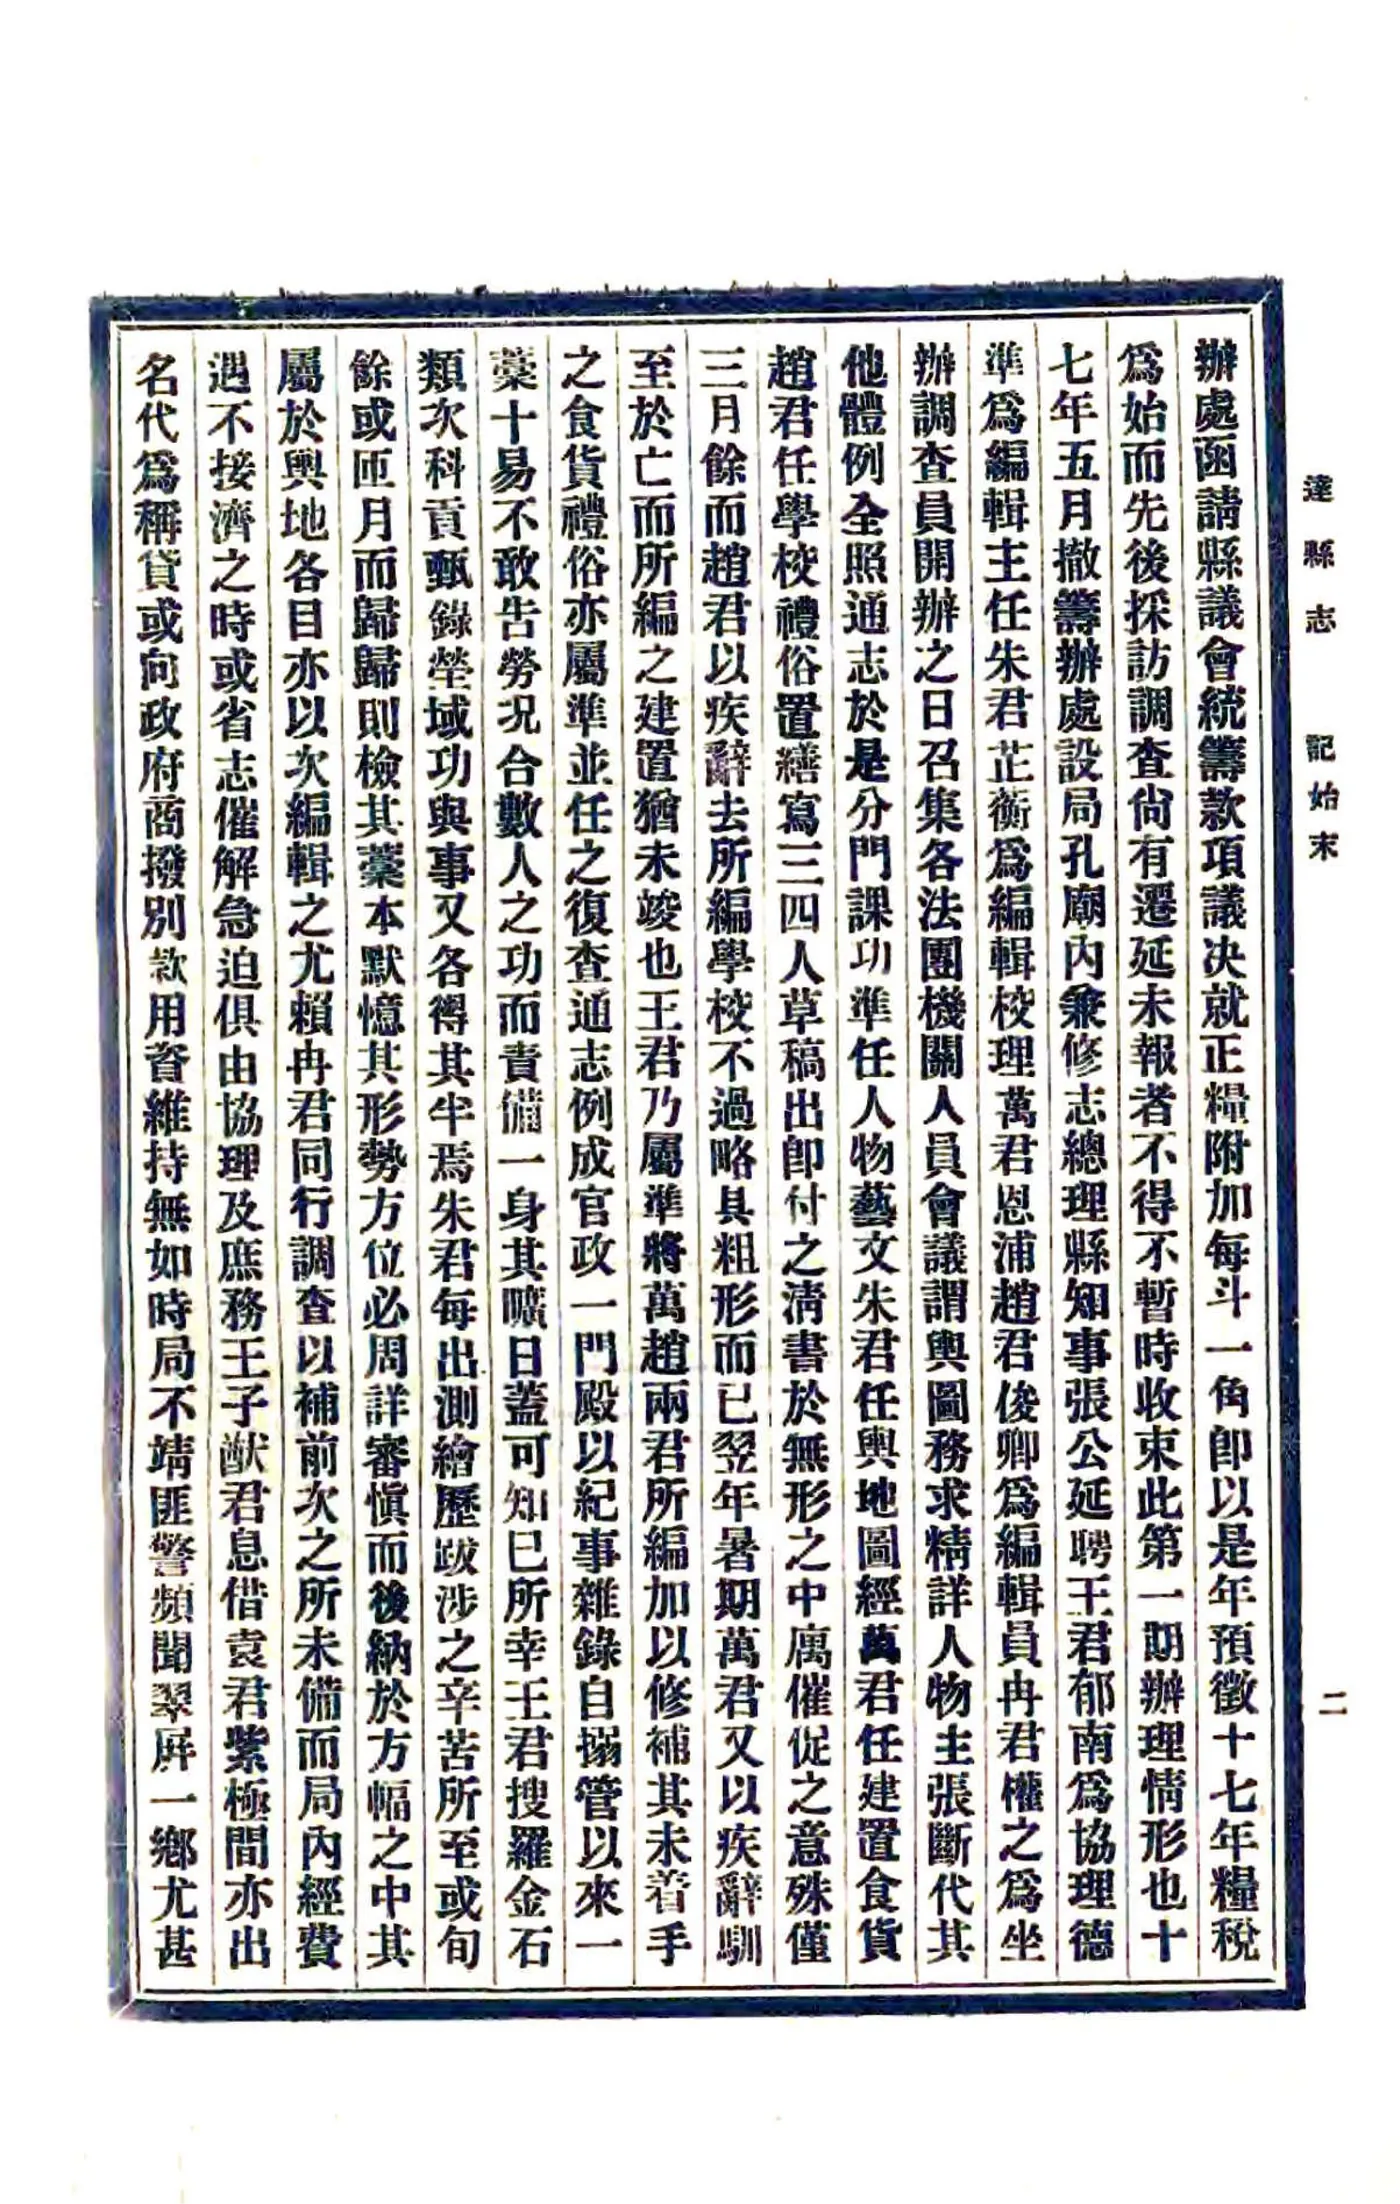 達縣志 記始末 二
辦處函請縣議會統籌款項議決就正糧附加每斗一角即以是年預徵十七年糧稅
為始而先後採訪調查尙有遷延未報者不得不暫時收束此第一期辦理情形也十
七年五月撤籌辦處設局孔廟內兼修志總理縣知事張公延聘王君郁南為協理德
準為編輯主任朱君芷蘅為編輯校理萬君恩浦趙君俊卿為編輯員冉君權之為坐
辦調查員開辦之日召集各法團機關人員會議謂輿圖務求精詳人物主張斷代其
他體例全照通志於是分門課功準任人物藝文朱君任輿地圖經萬君任建置食貨
趙君任學校禮俗置繕寫三四人草稿出即付之清書於無形之中寓催促之意殊僅
三月餘而趙君以疾辭去所編學校不過略具粗形而已翌年暑期萬君又以疾辭馴
至於亡而所編之建置猶未竣也王君乃屬準將萬趙兩君所編加以修補其未着手
之食貨禮俗亦屬準並任之復查通志例成官政一門殿以紀事雜錄自搦管以來一
藁十易不敢告勞況合數人之功而責備一身其曠日蓋可知已所幸王君搜羅金石
類次科貢甄錄塋域功與事又各得其半焉朱君每出測繪歷跋涉之辛苦所至或旬
餘或匝月而歸歸則檢其藁本默憶其形勢方位必周詳審愼而後納於方幅之中其
屬於輿地各目亦以次編輯之尤賴冉君同行調查以補前次之所未備而局內經費
遇不接濟之時或省志催解急迫俱由協理及庶務王子猷君息借袁君紫極間亦出
名代為稱貸或向政府商撥別款用資維持無如時局不靖匪警頻聞翠屏一鄉尤甚